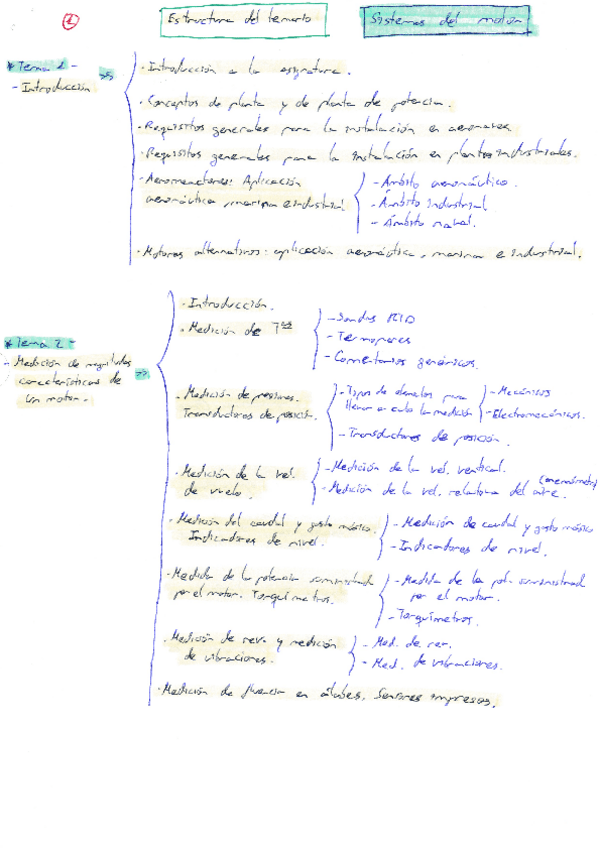 1
Estructura del temario
Sistemas del motor
* Tema 1 -
- Introducción
=>
· Introducción a la asignatura.
· Conceptos de planta y de planta de potencia.
· Requisitos generales para la instalación en aeronaves
· Requisitos generales para la instalación en plantas industriales.
· Aerorreactores: Aplicación
aeronáutica, marina e industrial
- Ámbito aeronáutico.
- Ámbito industrial
- Ámbito naval.
· Motores alternativos: aplicación aeronáutica, marina e industrial.
* Tema 2 -
- Medición de magnitudes
características de
un motor.
=>
· Introducción.
· Medición de Tªs
- Sondas RTD
- Termopares
- Comentarios genéricos.
· Medición de presiones.
Transductores de posición.
- Tipos de elementos para
llevar a cabo la medición
- Mecánicos
- Electromecánicos.
- Transductores de posición.
· Medición de la vel.
de vuelo.
- Medición de la vel. vertical.
- Medición de la vel. relativa del aire. (anemómetro)
· Medición del caudal y gasto másico.
Indicadores de nivel.
- Medición de caudal y gasto másico
- Indicadores de nivel.
· Medida de la potencia suministrada
por el motor. Torquímetros.
- Medida de la pot. suministrad
por el motor.
- Torquímetros.
· Medición de rev. y medición
de vibraciones.
- Med. de rev.
- Med. de vibraciones.
· Medición de fluencia en álabes. Sensores impresos.